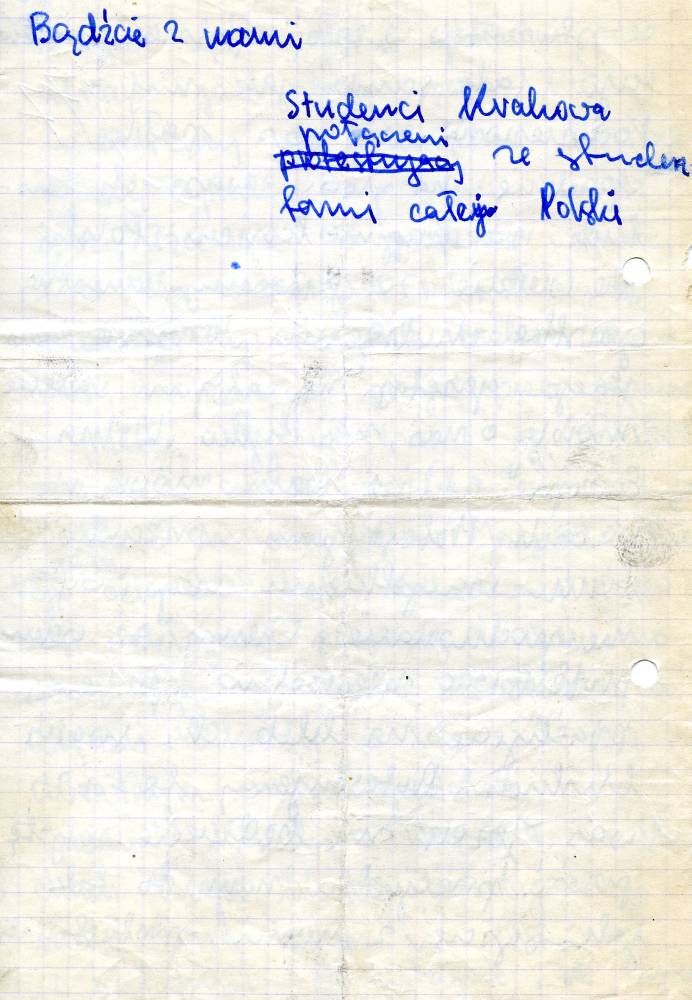 Bądźcie z nami
Studenci Krakowa
połączeni
protestujący ze studen
tami całej Polski